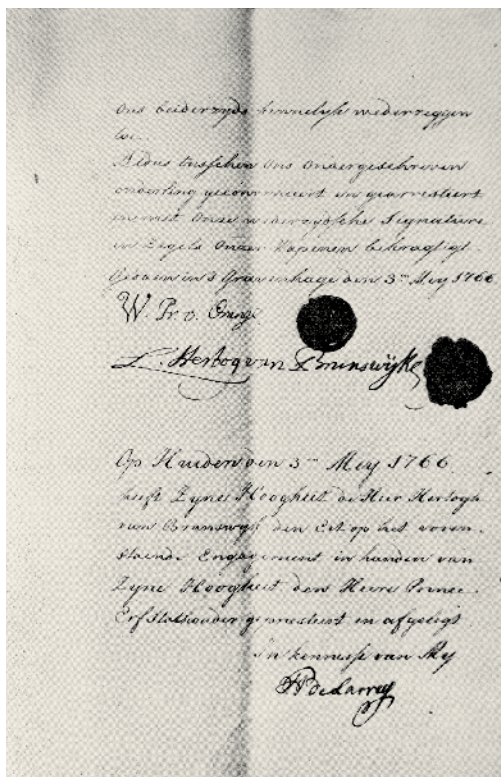 Ons beiderzyds kennelyk wederzeggen
toe.
Aldus tusschen Ons Ondergeschreven
onderling geconvenieert en gearresteert
en met Onze wederzydsche Signature
en Zegels Onzer Wapenen bekragtigt.
Gedaen in s Gravenhage den 3en Mey 1766
W. Pr. v. Orange
L. Hertog van Brunswijk
Op Huiden den 3en Mey 1766.
heeft Zyne Hoogheit de Heer Hertogh
van Brunswyk den Eet op het voren-
staende Engagement in handen van
Zyne Hoogheit den Heere Prince
Erfstathouder gepresteert en afgelegt.
In kennisse van My
de Larrey